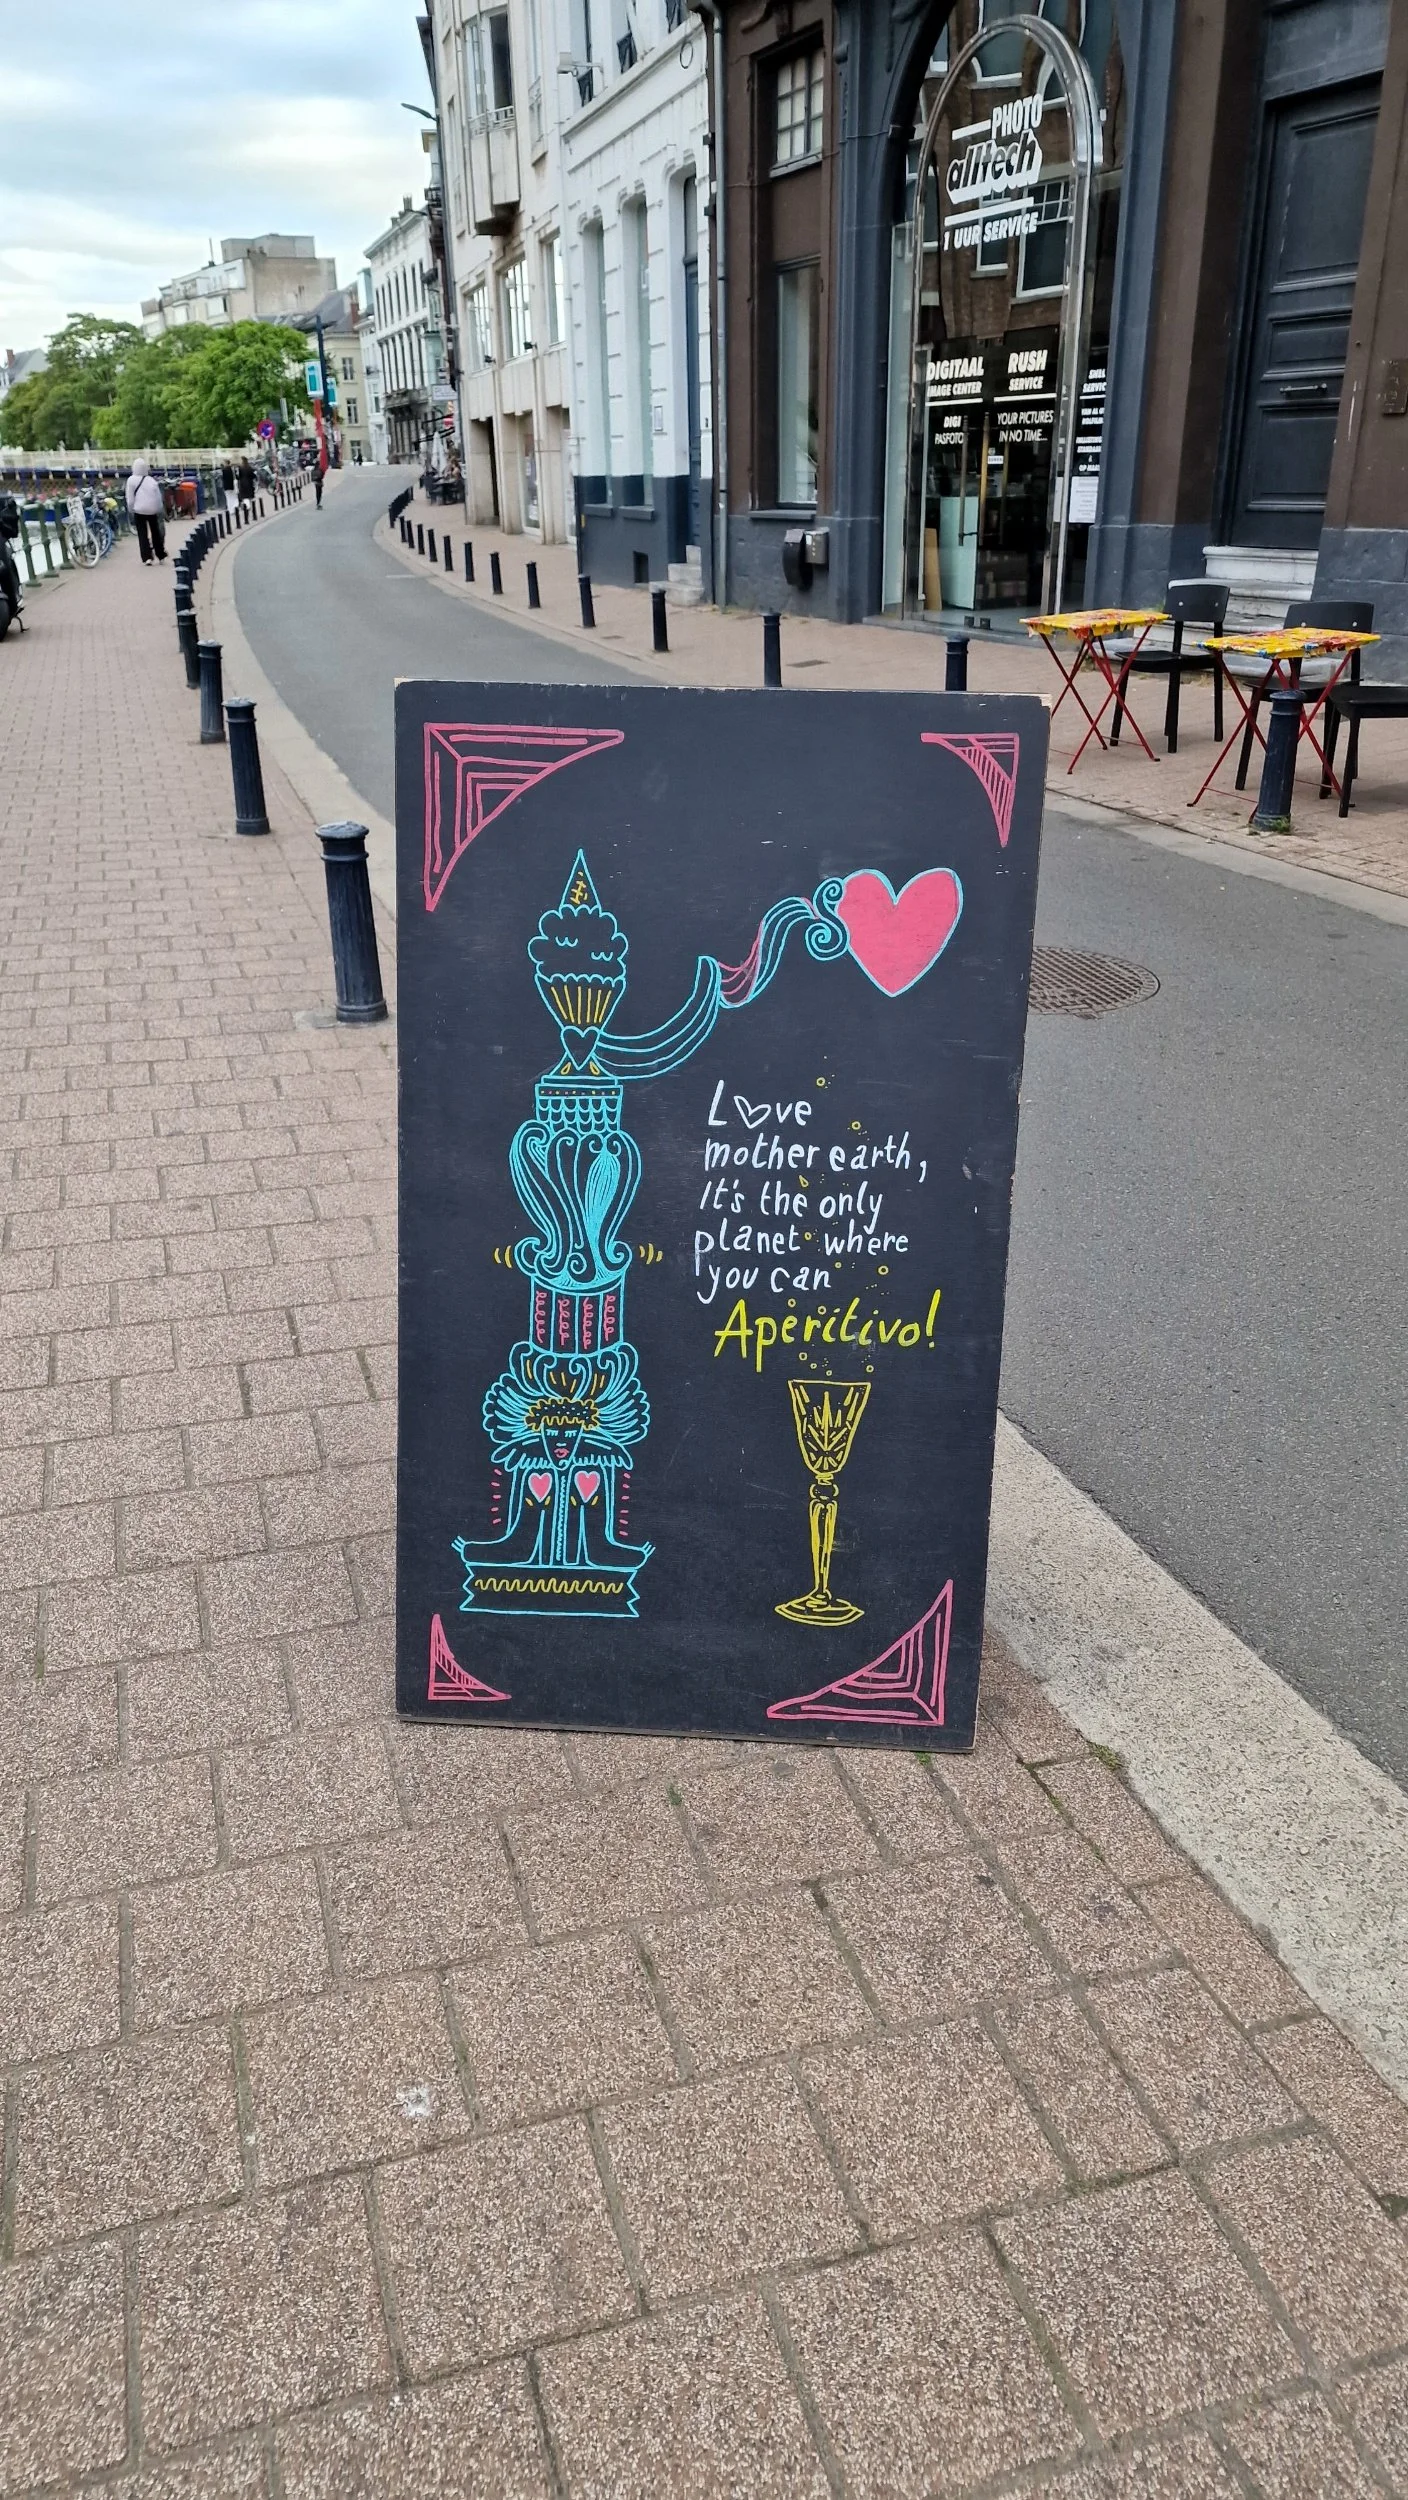 PHOTO
alltech
1 UUR SERVICE
DIGITAAL
IMAGE CENTER
DIGI
PASFOTO
RUSH
SERVICE
YOUR PICTURES
IN NO TIME...
Love
mother earth,
It's the only
planet where
you can
Aperitivo!